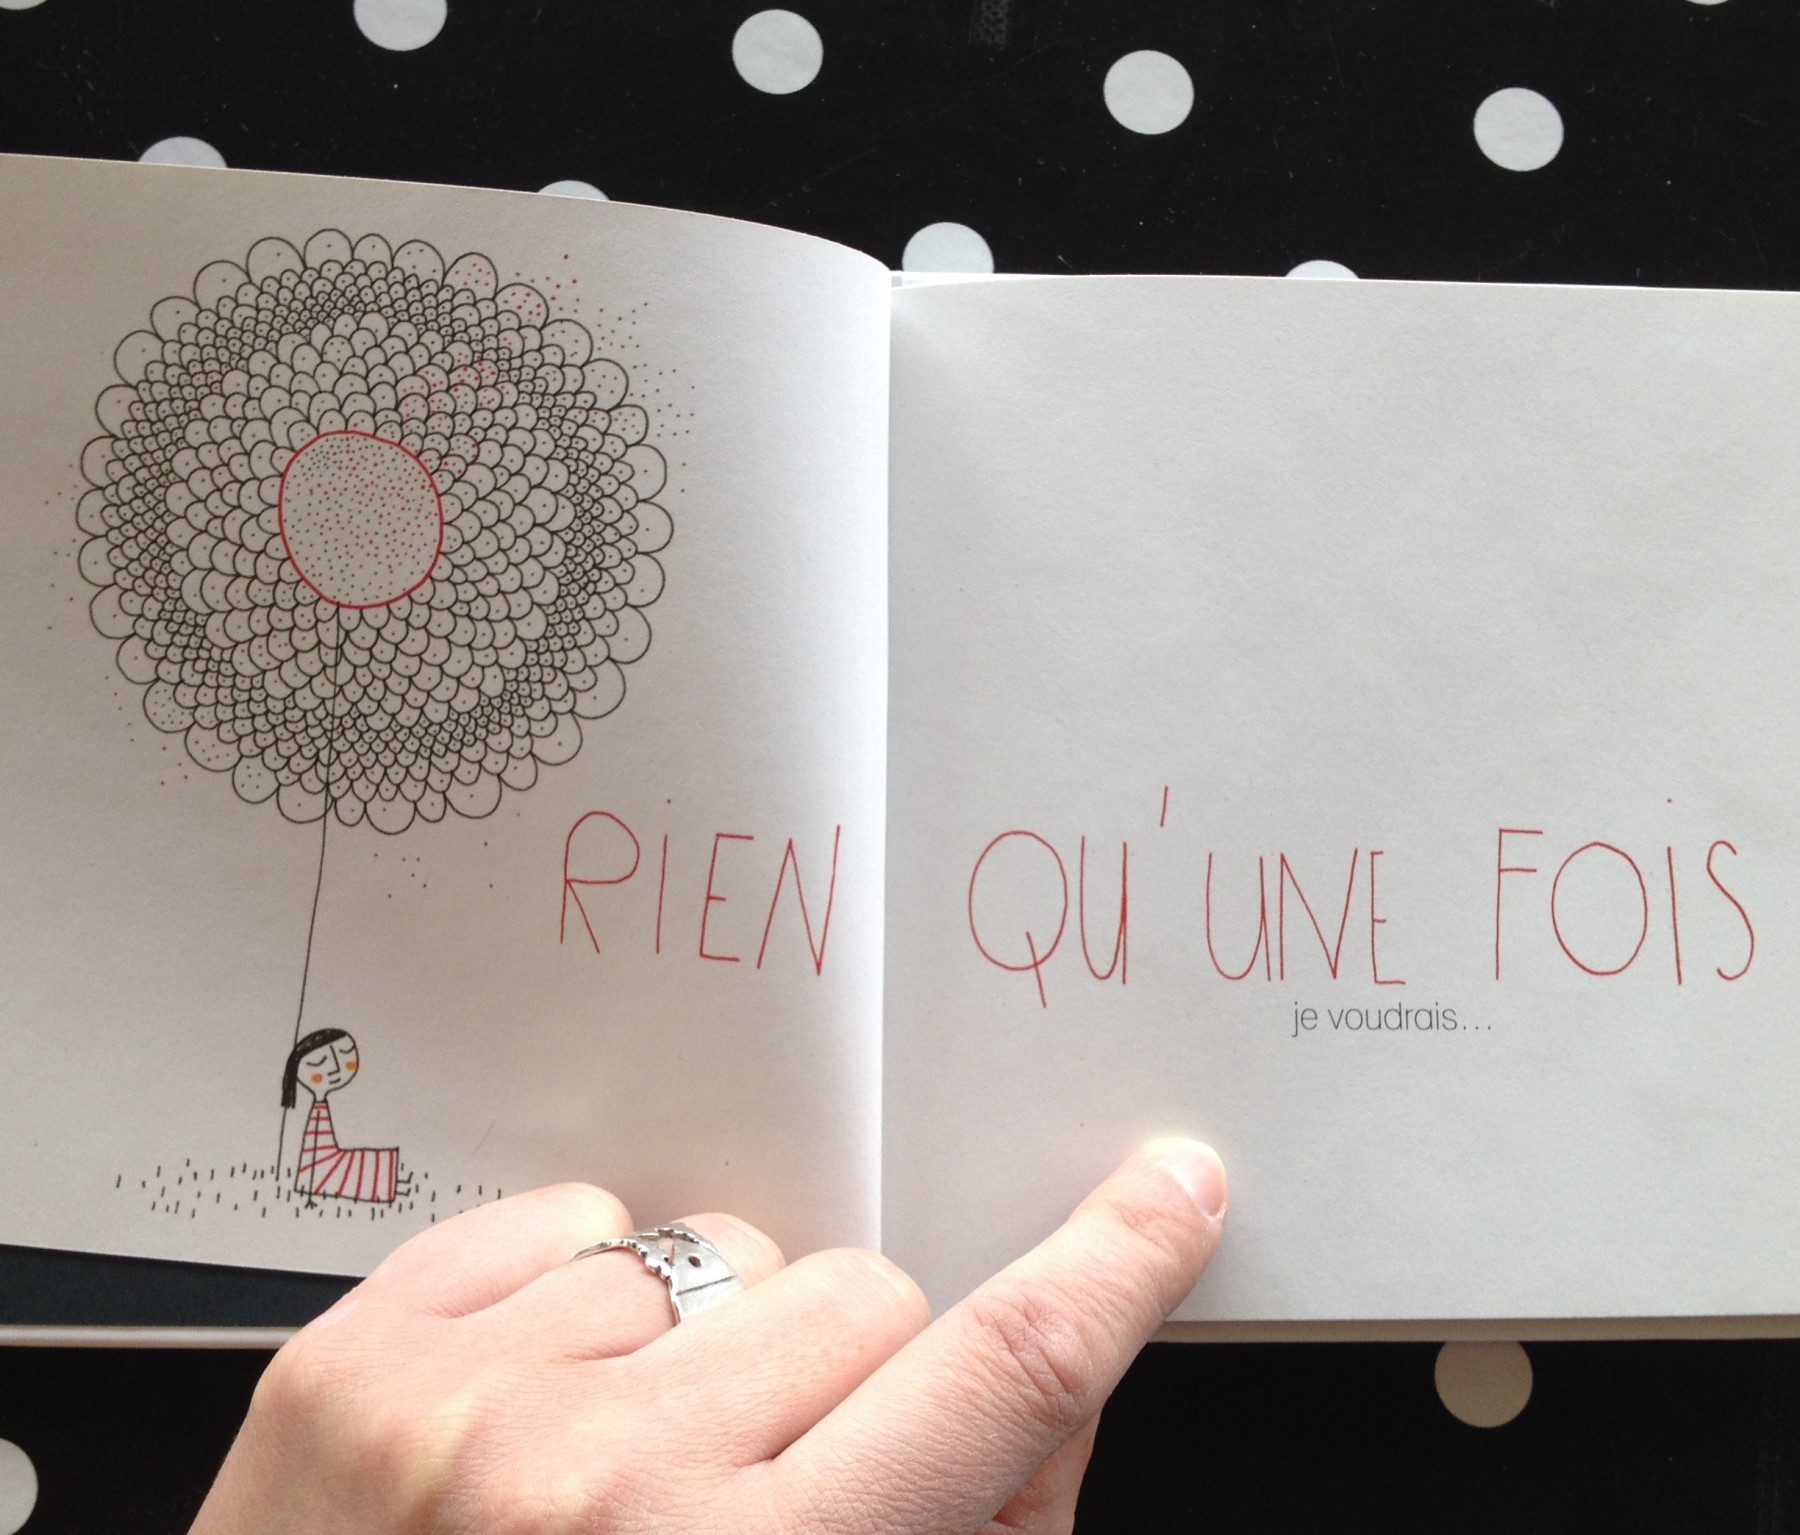 RIEN QU'UNE FOIS
je voudrais...